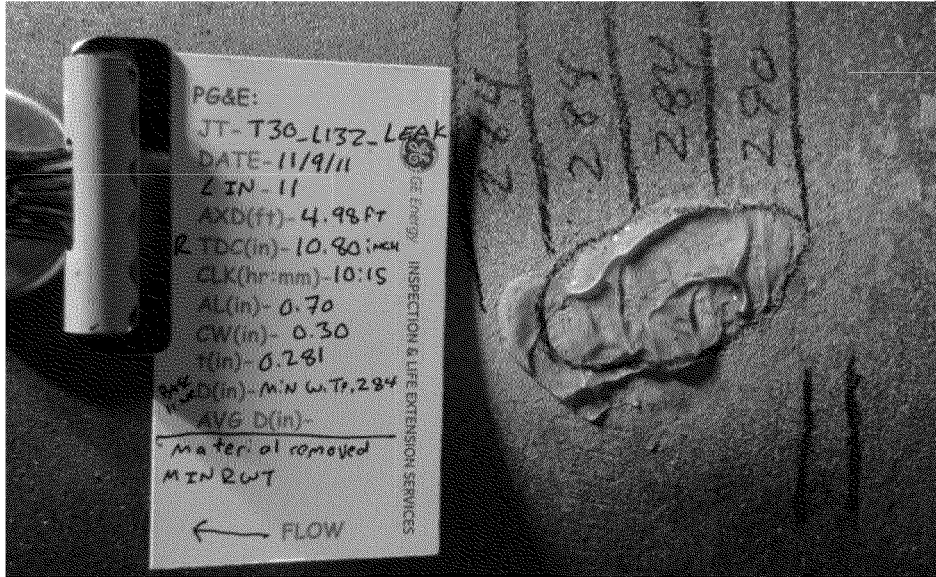 PG&E:
JT- T30_L132_LEAK
DATE- 11/9/11
L IN - 11
AXD(ft)- 4.98 FT
R TDC(in)- 10.80 inch
CLK(hr:mm)- 10:15
AL(in)- 0.70
CW(in)- 0.30
t(in)- 0.281
D(in)- MIN W.T. .284
AVG D(in)-
Material removed
MIN RWT
← FLOW
GE Energy INSPECTION & LIFE EXTENSION SERVICES
284
284
284
290
11